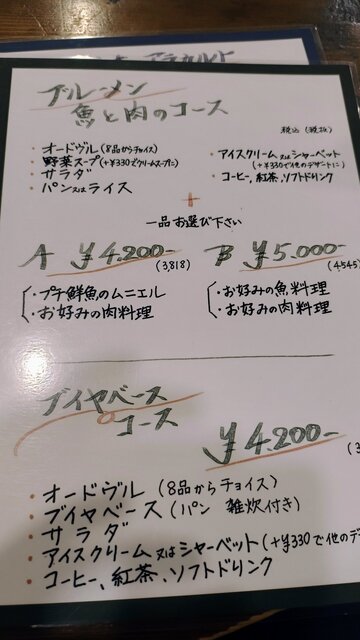 ブルーメン
魚と肉のコース
税込(税抜)
・オードヴル(8品からチョイス)
・野菜スープ(+¥330でクリームスープに)
・サラダ
・パン又はライス
・アイスクリーム又はシャーベット
(+¥330で他のデザートに)
・コーヒー、紅茶、ソフトドリンク
+
一品お選び下さい
A ¥4.200-
(3,818)
・プチ鮮魚のムニエル
・お好みの肉料理
B ¥5.000-
(4545)
・お好みの魚料理
・お好みの肉料理
ブイヤベース
コース
¥4.200-
・オードヴル(8品からチョイス)
・ブイヤベース(パン 雑炊付き)
・サラダ
・アイスクリーム又はシャーベット(+¥330で他のデ
・コーヒー、紅茶、ソフトドリンク